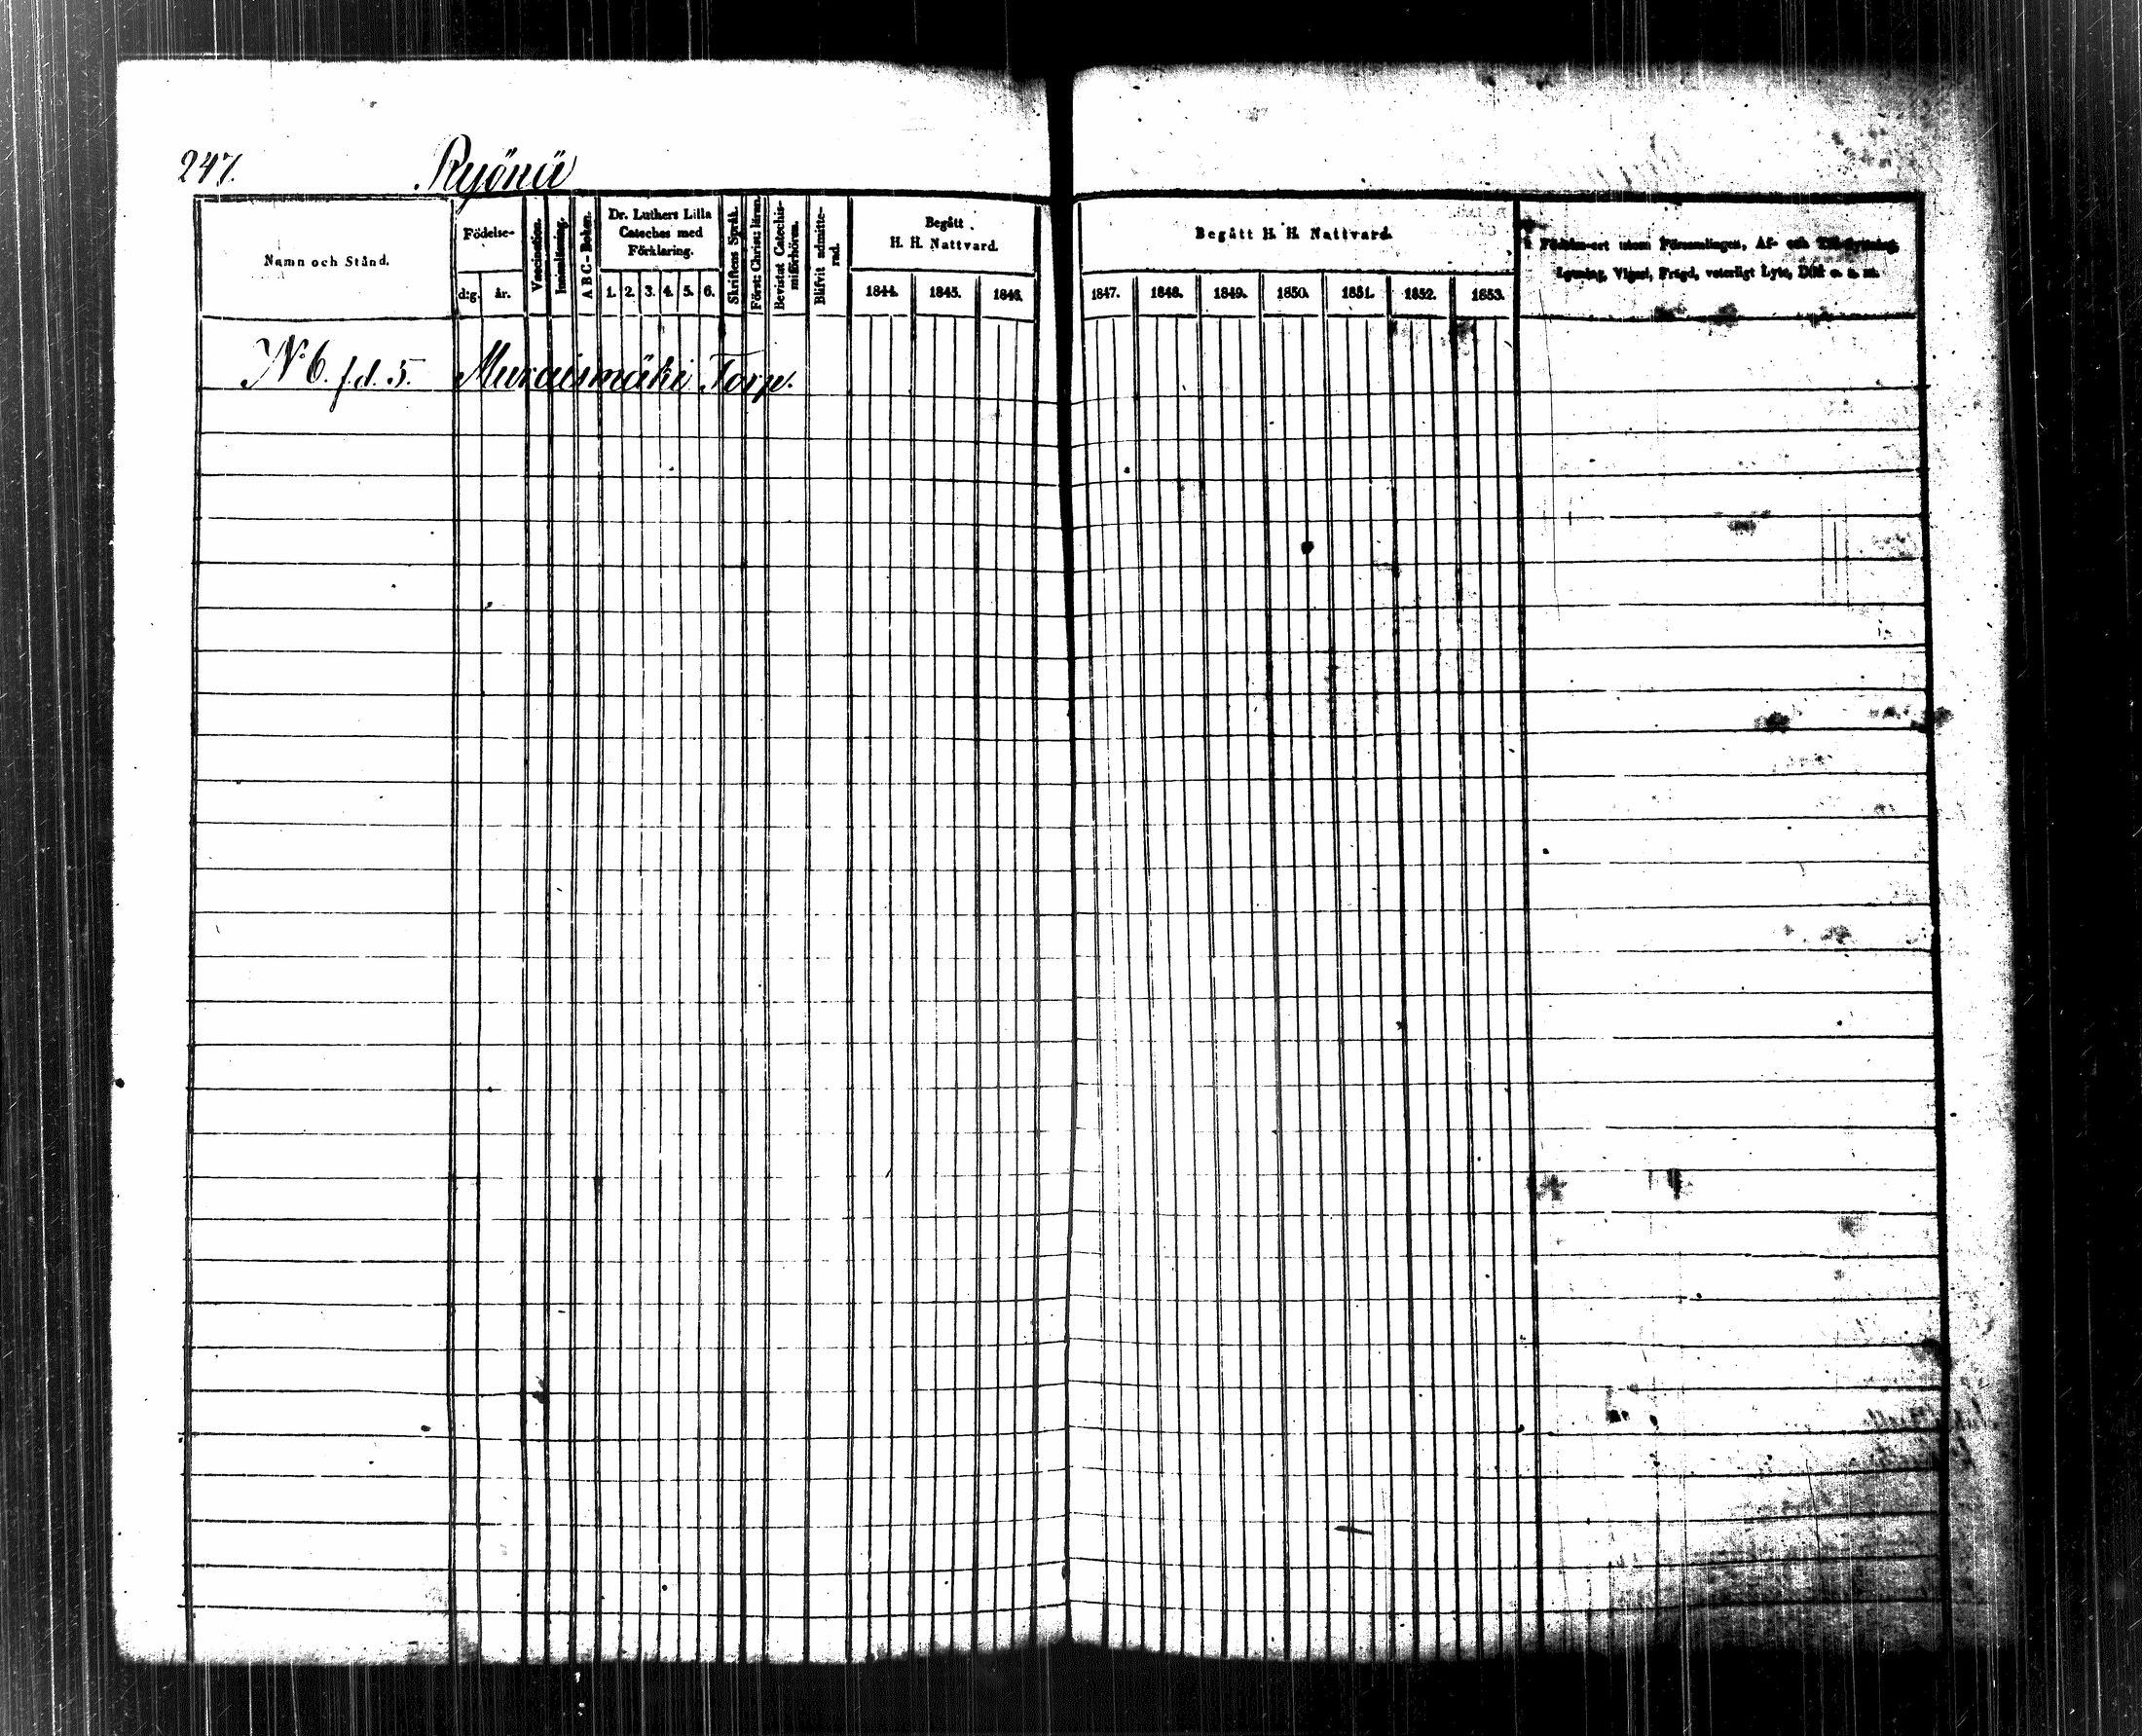 247. Ryönä
Namn och Stånd.
Födelse-
d:g. år.
Vaccination.
Innanläsning.
A B C - Boken.
Dr. Luthers Lilla
Cateches med
Förklaring.
1. 2. 3. 4. 5. 6.
Skriftens Språk.
Först: Christ: lären.
Bevistat Catechis-
miförhören.
Blifvit admitte-
rad.
Begått
H. H. Nattvard.
1844. 1845. 1846.
Begått H. H. Nattvard.
1847. 1848. 1849. 1850. 1851. 1852. 1853.
Födelse-ort utom Församlingen, Af- och
Lysning, Vigsel, Frägd, veterligt Lyte, Död o. s. m.
N 6. f.d. 5. Torp.